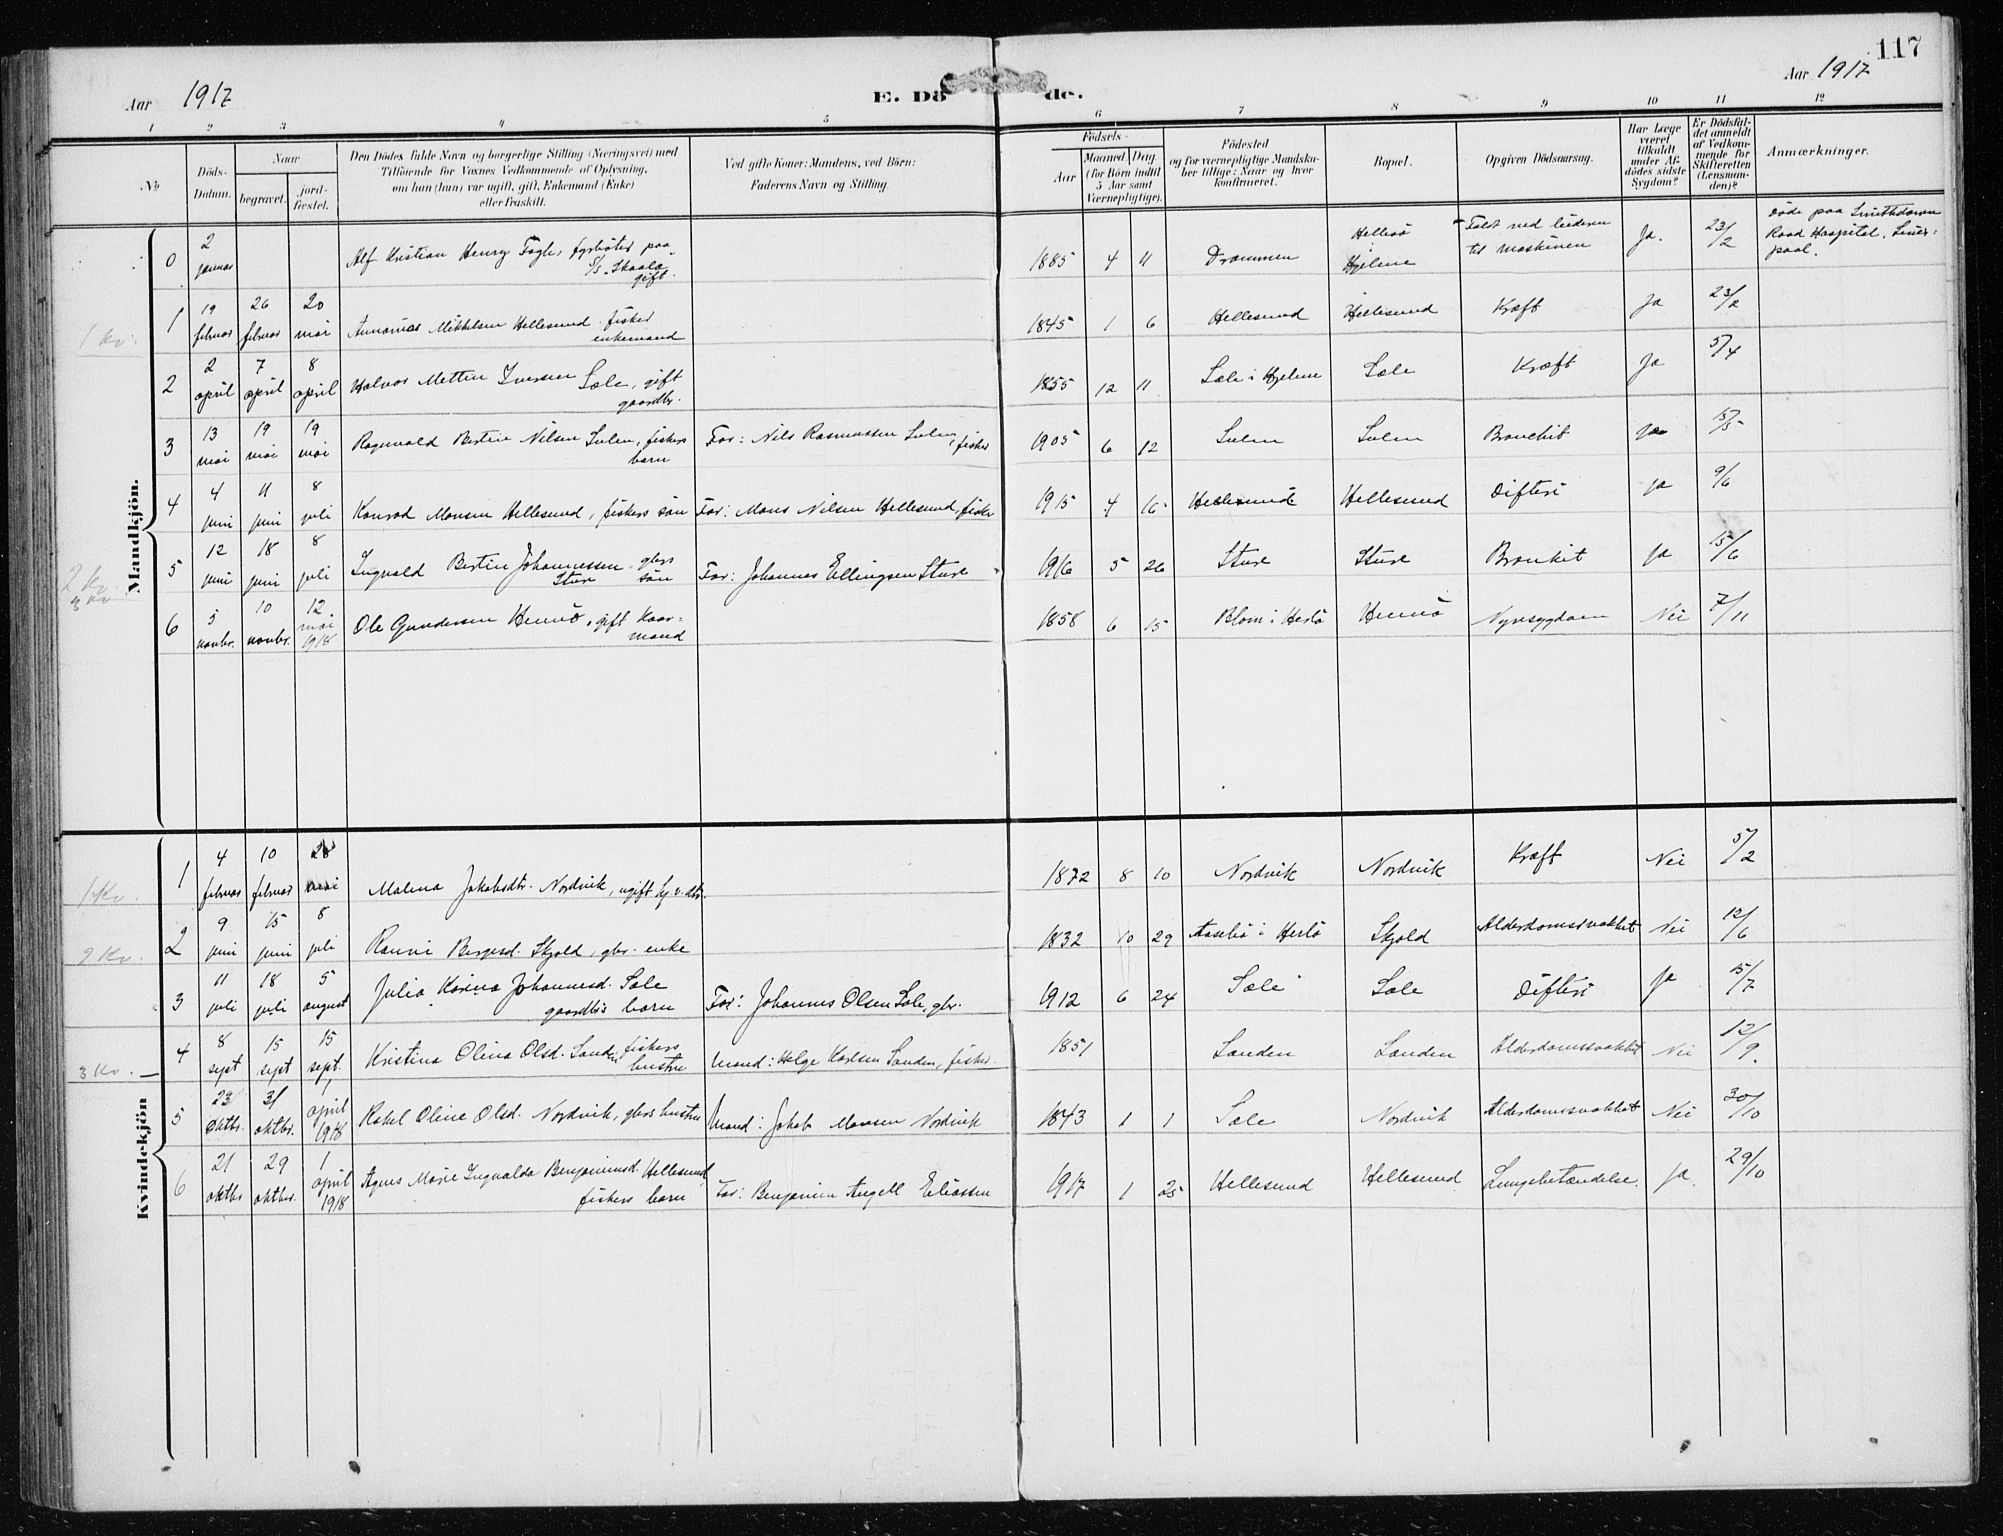 117
Aar 1917
E. Dö
de.
Aar 1917
1 2 3 4 5 6 7 8 9 10 11 12
No
Döds-
Datum.
Naar
begravet.
jord-
fæstet.
Den Dödes fulde Navn og borgerlige Stilling (Næringsvei) med
Tilföiende for Voxnes Vedkommende af Oplysning,
om han (hun) var ugift, gift, Enkemand (Enke)
eller fraskilt.
Ved gifte Koner: Mandens, ved Börn:
Faderens Navn og Stilling.
Födsels-
Aar
Maaned Dag
(for Börn indtil
5 Aar samt
Værnepligtige).
Födested
og for værnepligtige Mandska-
ber tillige: Naar og hvor
konfirmeret.
Bopæl.
Opgiven Dödsaarsag.
Har Læge
været
tilkaldt
under Af-
dödes sidste
Sygdom?
Er Dödsfal-
det anmeldt
af Vedkom-
mende for
Skifteretten
(Lensman-
den)?
Anmærkninger.
Mandkjön.
0 2 januar Alf Kristian Henry Fagh, fyrböter paa
S/S "Skaala"
gift.
1885 4 11 Drammen Hellesö i Hjelme Faldt ned leideren
til maskinen Ja. 23/2 Döde paa Smithdown
Road Hospital, Liver-
pool.
1 kr. 1 19 februar 26 februar 20 mai Annanias Mikkelsen Hellesund fisker
enkemand 1845 1 6 Hellesund Hellesund Kræft Ja 23/2
2 2 april 7 april 8 april Halvor Mettin Iversen Sæle, gift
gaardbr. 1855 12 11 Sæle i Hjelme Sæle Kræft Ja 5/4
3 13 mai 19 mai 19 mai Ragnvald Bertin Nilsen Sulen, fiskers
barn Far: Nils Rasmussen Sulen, fisker 1905 6 12 Sulen Sulen Bronchit Ja 15/5
4 4 juni 11 juni 8 juli Konrad Monsen Hellesund, fiskers sön Far: Mons Nilsen Hellesund, fisker 1915 4 16 Hellesund Hellesund Difteri Ja 9/6
2 kr.
3 kr
5 12 juni 18 juni 8 juli Ingvald Bertin Johannessen Sture gbrs
sön Far: Johannes Ellingsen Sture 1916 5 26 Sture Sture Bronkit Ja 15/6
6 5 novbr. 10 novbr. 12 mai 1918 Ole Gundersen Hennö, gift kaar-
mand 1858 6 15 Blom i Herlö Hennö Nyresygdom Nei 7/11
Kvindekjön
1 Kr. 1 4 februar 10 februar 28 mai Malena Jakobsdtr. Nordvik, ugift 1872 8 10 Nordvik Nordvik Kræft Nei 5/2
2 Kr. 2 9 juni 15 juni 8 juli Ranvei Bergesd. Skjold, gbr. enke 1832 10 29 Aasebö i Herlö Skjold Alderdomssvakhet Nei 12/6
3 11 juli 18 juli 5 august Julia Karina Johannesd. Sæle
gaardbrs barn Far: Johannes Olsen Sæle, gbr. 1912 6 24 Sæle Sæle Difteri Ja 15/7
3 Kr. 4 8 sept 15 sept 15 sept. Kristina Olina Olsd. Sanden fiskers
hustru Mand: Helge Karlsen Sanden, fisker. 1851 Sanden Sanden Alderdomssvakhet Nei 12/9.
5 23 oktbr. 31 oktbr. 1 april 1918 Rakel Oline Olsd. Nordvik, gbrs hustru Mand: Jakob Monsen Nordvik 1843 1 1 Sæle Nordvik Alderdomssvakhet Nei 30/10
6 21 oktbr 29 oktbr. 1 april 1918 Agnes Marie Ingvalda Benjaminsd. Hellesund
fiskers barn Far: Benjamin Angell Eliassen 1917 1 25 Hellesund Hellesund Lungebetændelse. Ja. 29/10